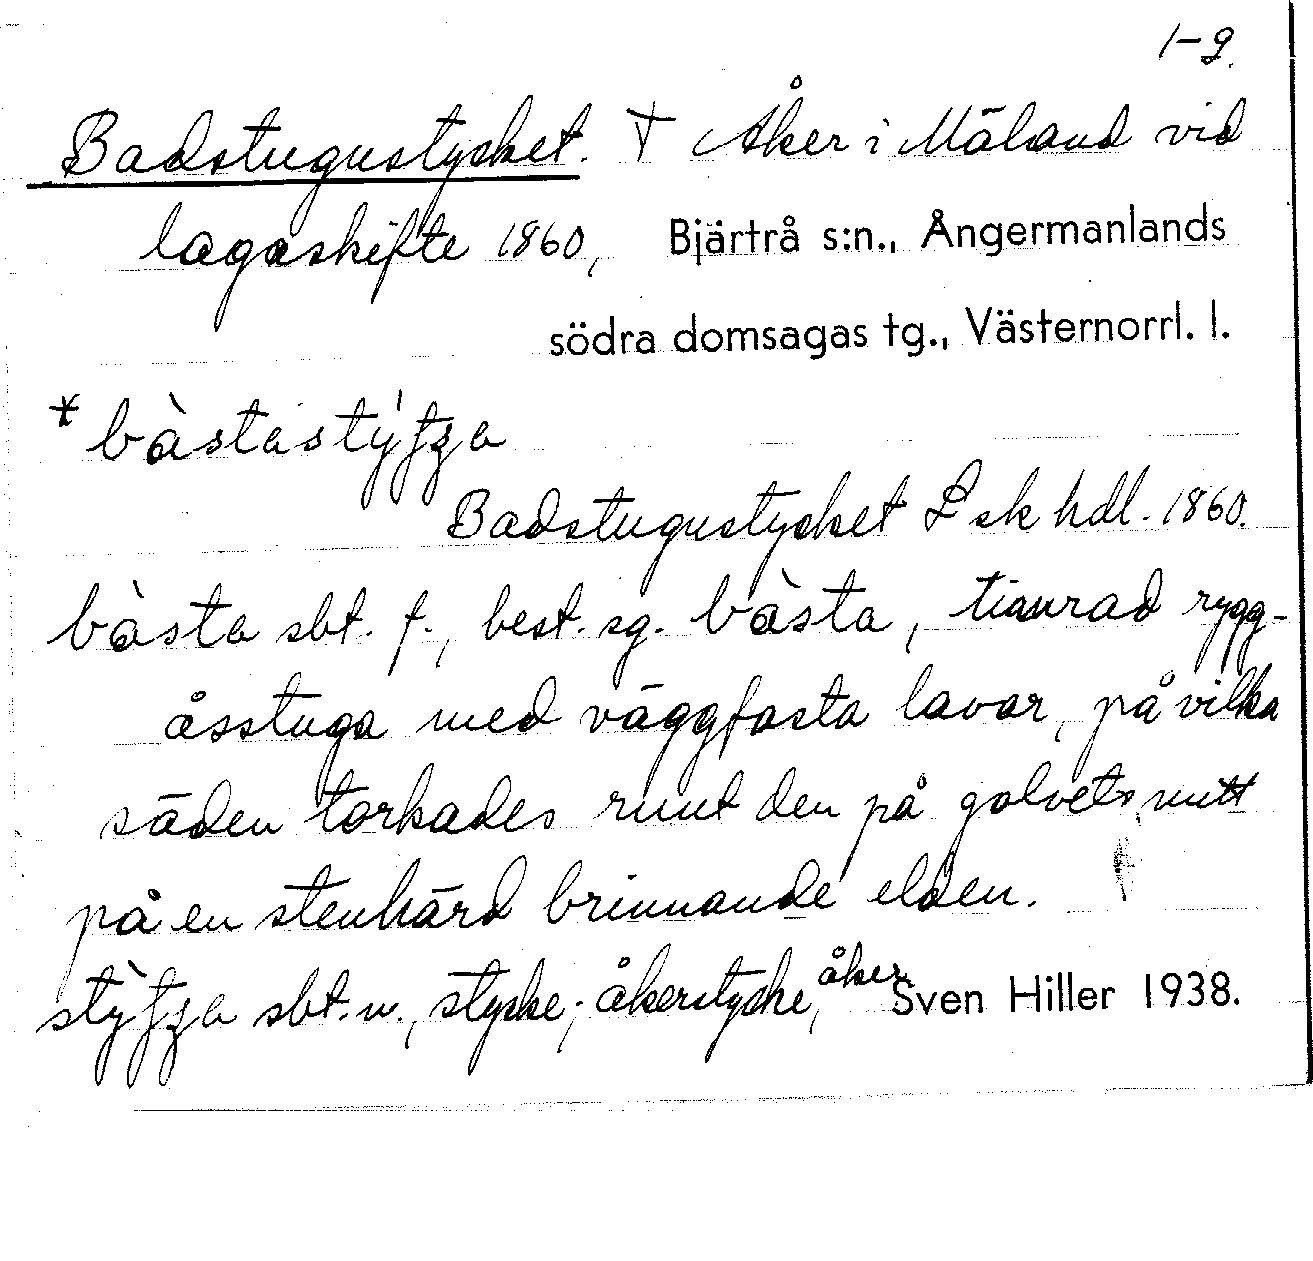 1-2.
Badstugustycket. † Åker i Mäland vid
lagaskifte 1860, Bjärtrå s:n., Ångermanlands
södra domsagas tg., Västernorrl. l.
Badstugustycket L sk hdl. 1860.
bàsta sbt. f., best. sg. bàsta, timrad rygg-
åsstuga med väggfasta lavar, på vilka
säden torkades runt den på golvets mitt
på en stenhärd brinnande elden.
sbt. n., stycke; åkerstycke, åker Sven Hiller 1938.